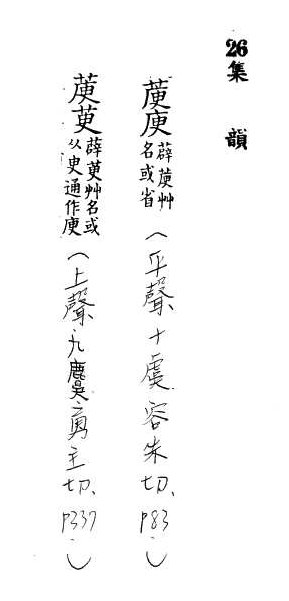 26集韻
庾薜艸名或省（平聲十虞容朱切、P83、）
萸薜萸艸名或从臾通作庾（上聲、九麌勇主切、P337、）